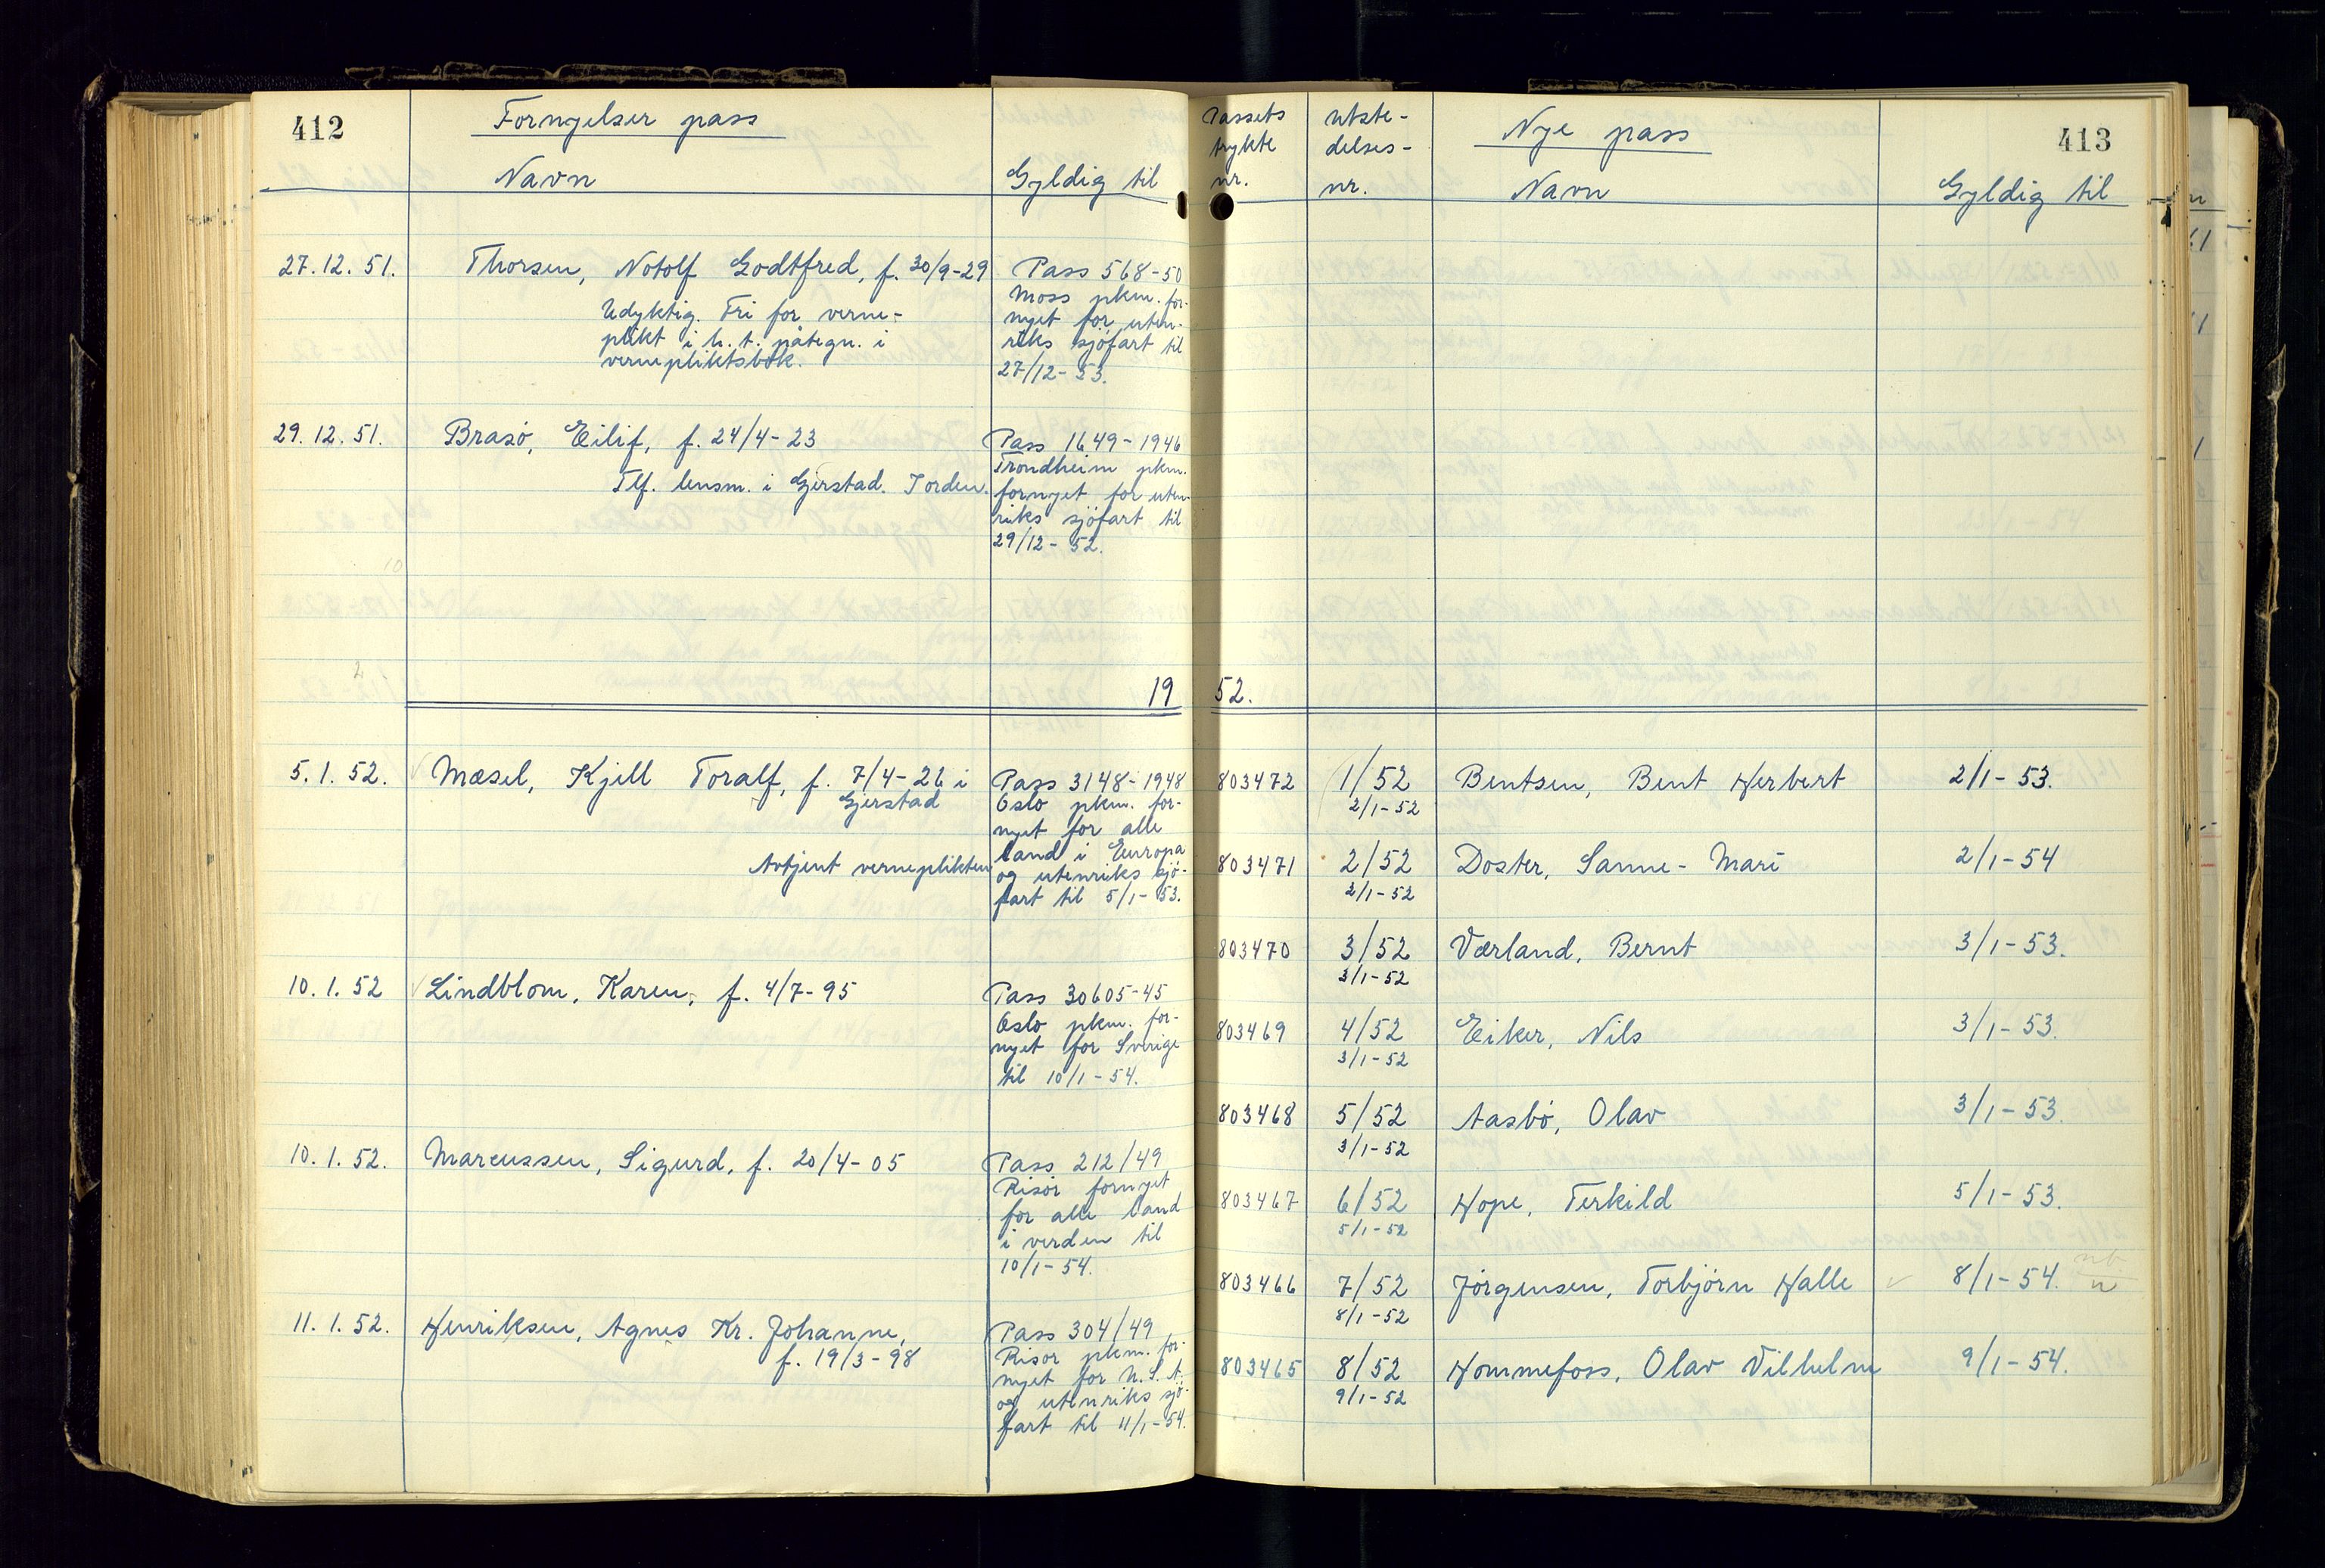 412
Fornyelser pass
Navn
Gyldig til
27.12.51.
Thorsen, Notolf Godtfred, f. 30/9-29
Udyktig. Fri for verne-
plikt i h. t. påtegn. i
vernepliktsbok.
Pass 568-50
Moss pkm. for-
nyet for uten-
riks sjöfart til
27/12-53.
29.12.51.
Brasö, Eilif, f. 24/4-23
Tlf. lensm. i Gjerstad. I orden.
Pass 1649-1946
Trondheim pkm.
fornyet for uten-
riks sjöfart til
29/12-52.
19
5.1.52.
Mæsel, Kjell Toralf, f. 7/4-26 i
Gjerstad
Avtjent verneplikten
Pass 3148-1948
Oslo pkm. for-
nyet for alle
land i Europa
og utenriks sjö-
fart til 5/1-53.
10.1.52
Lindblom, Karen, f. 4/7-95
Pass 30605-45
Oslo pkm. for-
nyet for Sverige
til 10/1-54.
10.1.52.
Marcussen, Sigurd, f. 20/4-05
Pass 212/49
Risör fornyet
for alle land
i verden til
10/1-54.
11.1.52.
Henriksen, Agnes Kr. Johanne,
f. 19/3-98
Pass 304/49
Risör pkm. for-
nyet for U.S.A.
og utenriks sjö-
fart til 11/1-54.
413
Passets
trykte
nr.
Utste-
delses-
nr.
Nye pass
Navn
Gyldig til
52.
803472 1/52 Bentsen, Bent Herbert 2/1-53.
2/1-52
803471 2/52 Doster, Sanne-Mari 2/1-54
2/1-52
803470 3/52 Værland, Bernt 3/1-53.
3/1-52
803469 4/52 Eiker, Nils 3/1-53.
3/1-52
803468 5/52 Aasbö, Olav 3/1-53.
3/1-52
803467 6/52 Hope, Terkild 5/1-53.
5/1-52
803466 7/52 Jörgensen, Torbjörn Halle 8/1-54.
8/1-52
803465 8/52 Hommefoss, Olav Vilhelm 9/1-54.
9/1-52